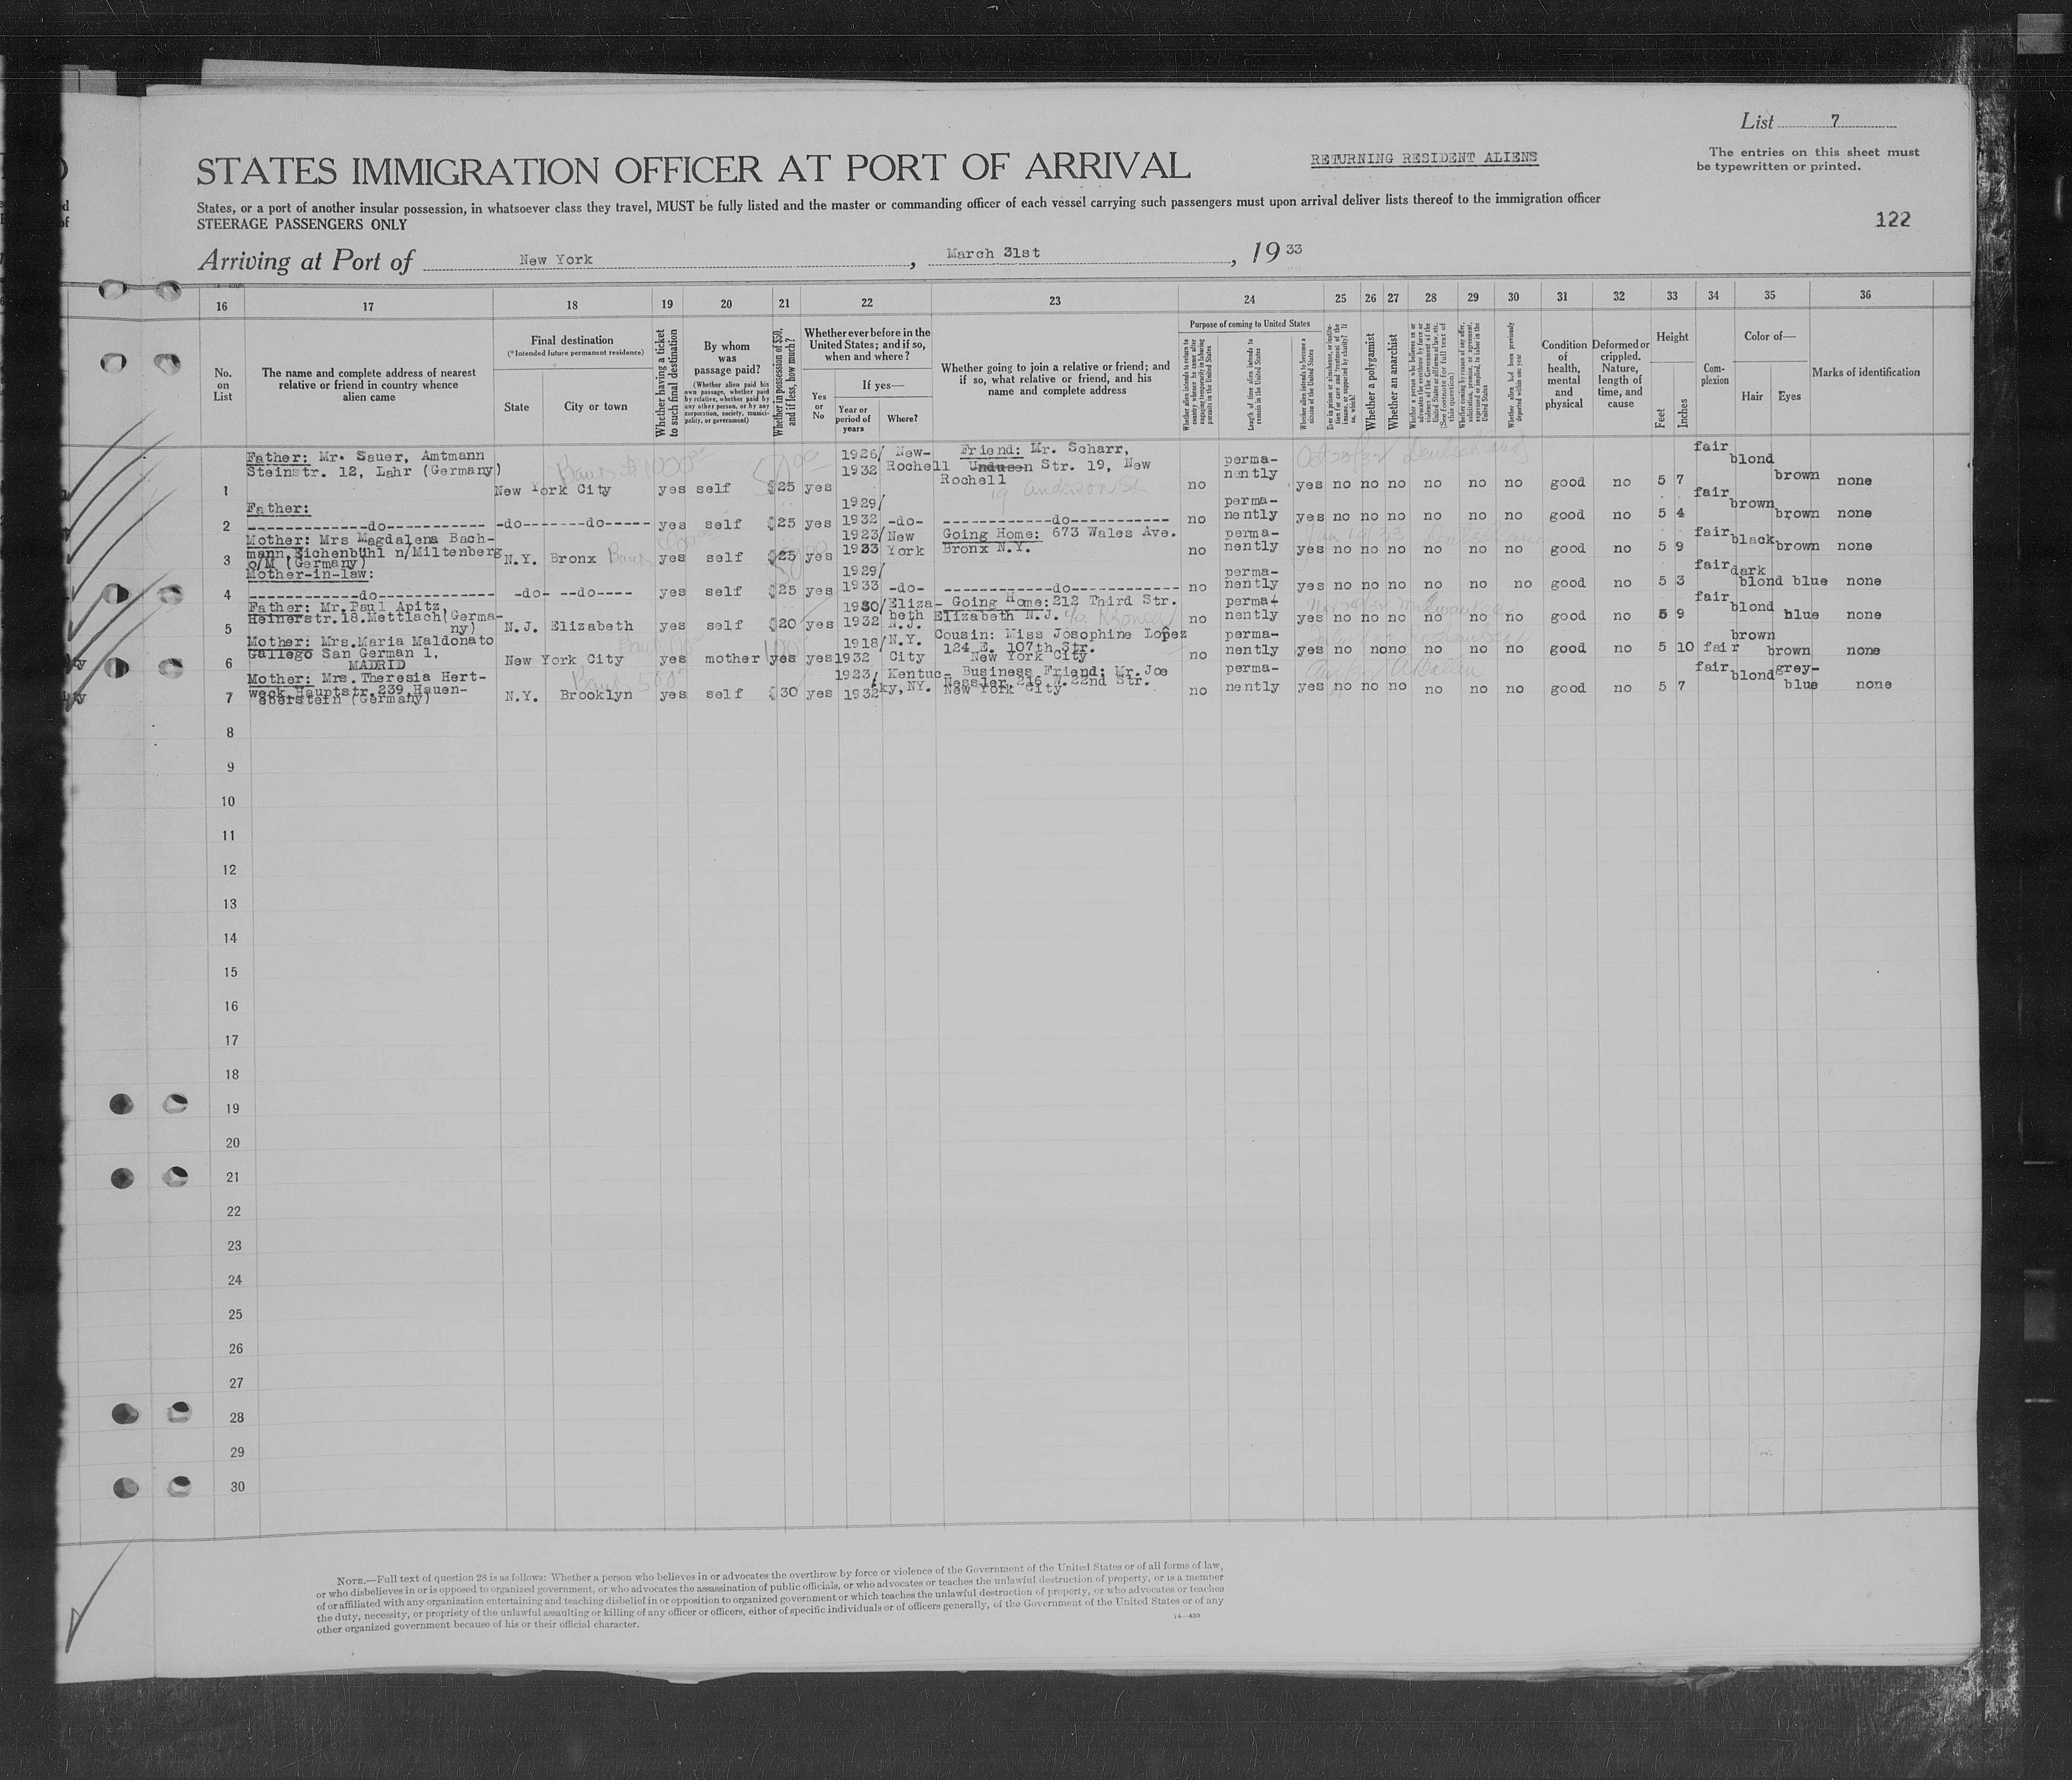 List 7
STATES IMMIGRATION OFFICER AT PORT OF ARRIVAL
RETURNING RESIDENT ALIENS
The entries on this sheet must
be typewritten or printed.
States, or a port of another insular possession, in whatsoever class they travel, MUST be fully listed and the master or commanding officer of each vessel carrying such passengers must upon arrival deliver lists thereof to the immigration officer
STEERAGE PASSENGERS ONLY
122
Arriving at Port of New York, March 31st, 19 33
16 17 18 19 20 21 22 23 24 25 26 27 28 29 30 31 32 33 34 35 36
No. on List
The name and complete address of nearest relative or friend in country whence alien came
Final destination
(*Intended future permanent residence)
State
City or town
Whether having a ticket to such final destination
By whom was passage paid?
(Whether alien paid his own passage, whether paid by relative, whether paid by any other person, or by any corporation, society, municipality, or government)
Whether in possession of $50, and if less, how much?
Whether ever before in the United States; and if so, when and where?
Yes or No
If yes—
Year or period of years
Where?
Whether going to join a relative or friend; and if so, what relative or friend, and his name and complete address
Purpose of coming to United States
Length of time alien intends to remain in the United States
Whether alien intends to become a citizen of the United States
Whether a polygamist
Whether an anarchist
Whether alien had been previously deported within one year
Condition of health, mental and physical
Deformed or crippled. Nature, length of time, and cause
Height
Feet
Inches
Complexion
Color of—
Hair
Eyes
Marks of identification
1 Father: Mr. Sauer, Amtmann Steinstr. 12, Lahr (Germany) New York City yes self $25 yes 1926/1932 New-Rochell Friend: Mr. Scharr, Str. 19, New Rochell no perma-nently yes no no no no no no good no 5 7 fair blond brown none
19 Anderson St
2 Father: ------------do----------- -do-------do----- yes self $25 yes 1929/1932 -do- -----------do----------- no perma-nently yes no no no no no no good no 5 4 fair brown brown none
3 Mother: Mrs Magdalena Bach-mann, Eichenbühl n/Miltenberg o/M (Germany) N.Y. Bronx yes self $25 yes 1923/1933 New York Going Home: 673 Wales Ave. Bronx N.Y. no perma-nently yes no no no no no no good no 5 9 fair black brown none
4 Mother-in-law: ------------do------------ -do- --do---- yes self $25 yes 1929/1933 -do- -----------do------------ no perma-nently yes no no no no no no good no 5 3 fair dark blond blue none
5 Father: Mr. Paul Apitz, Heinerstr.18.Mettlach(Germa-ny) N.J. Elizabeth yes self $20 yes 1930/1932 Eliza-beth N.J. Going Home: 212 Third Str. Elizabeth N.J. no perma-nently yes no no no no no no good no 5 9 fair blond blue none
6 Mother: Mrs.Maria Maldonato Gallego San German 1, MADRID New York City yes mother yes yes 1918/1932 N.Y. City Cousin: Miss Josophine Lopez 124 E. 107th Str. New York City no perma-nently yes no no no no no no good no 5 10 fair brown brown none
7 Mother: Mrs. Theresia Hert-weck Hauptstr.239 Hauen-eberstein (Germany) N.Y. Brooklyn yes self $30 yes 1923/1932 Kentuc-ky, NY. Business Friend: Mr. Joe Nessler 216 W.22nd Str. New York City no perma-nently yes no no no no no no good no 5 7 fair blond grey-blue none
8
9
10
11
12
13
14
15
16
17
18
19
20
21
22
23
24
25
26
27
28
29
30
NOTE.—Full text of question 28 is as follows: Whether a person who believes in or advocates the overthrow by force or violence of the Government of the United States or of all forms of law,
or who disbelieves in or is opposed to organized government, or who advocates the assassination of public officials, or who advocates or teaches the unlawful destruction of property, or is a member
of or affiliated with any organization entertaining and teaching disbelief in or opposition to organized government or which teaches the unlawful destruction of property, or who advocates or teaches
the duty, necessity, or propriety of the unlawful assaulting or killing of any officer or officers, either of specific individuals or of officers generally, of the Government of the United States or of any
other organized government because of his or their official character.
14—430